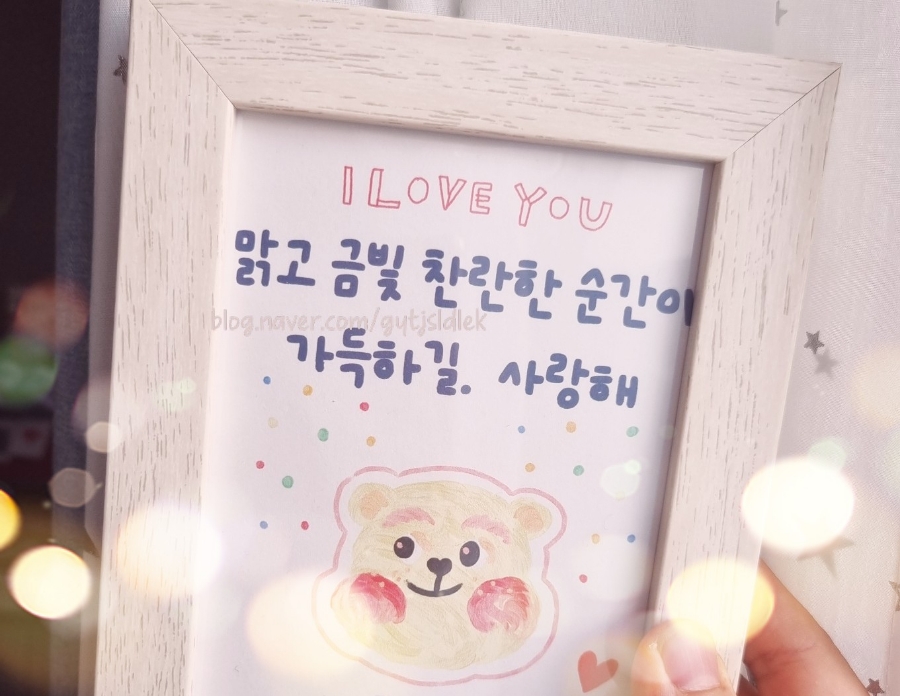 I LOVE YOU
맑고 금빛 찬란한 순간이
blog.naver.com/gutjsldlek
가득하길. 사랑해